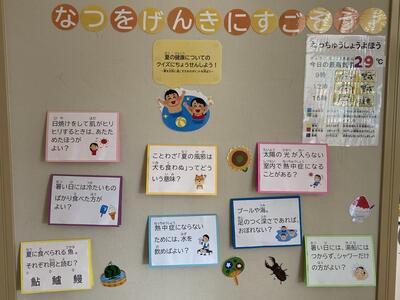 なつをげんきにすごそう！
夏の健康についての
クイズにちょうせんしよう！
ねっちゅうしょうよほう
今日の最高気温
29℃
9時
12時
15時
日焼けをして肌がヒリ
ヒリするときは、あたた
めたほうが
よい？
ことわざ「夏の風邪は
犬も食わぬ」ってどう
いう意味？
太陽の光が入らない
室内で熱中症になる
ことがある？
暑い日には冷たいもの
ばかり食べた方が
よい？
熱中症にならない
ためには、水を
飲めばよい？
プールや海。
足のつく深さであれば、
おぼれない？
夏に食べられる魚。
それぞれ何と読む？
鮎 鱸 鰻
暑い日には、湯船には
つからず、シャワーだけ
の方がよい？